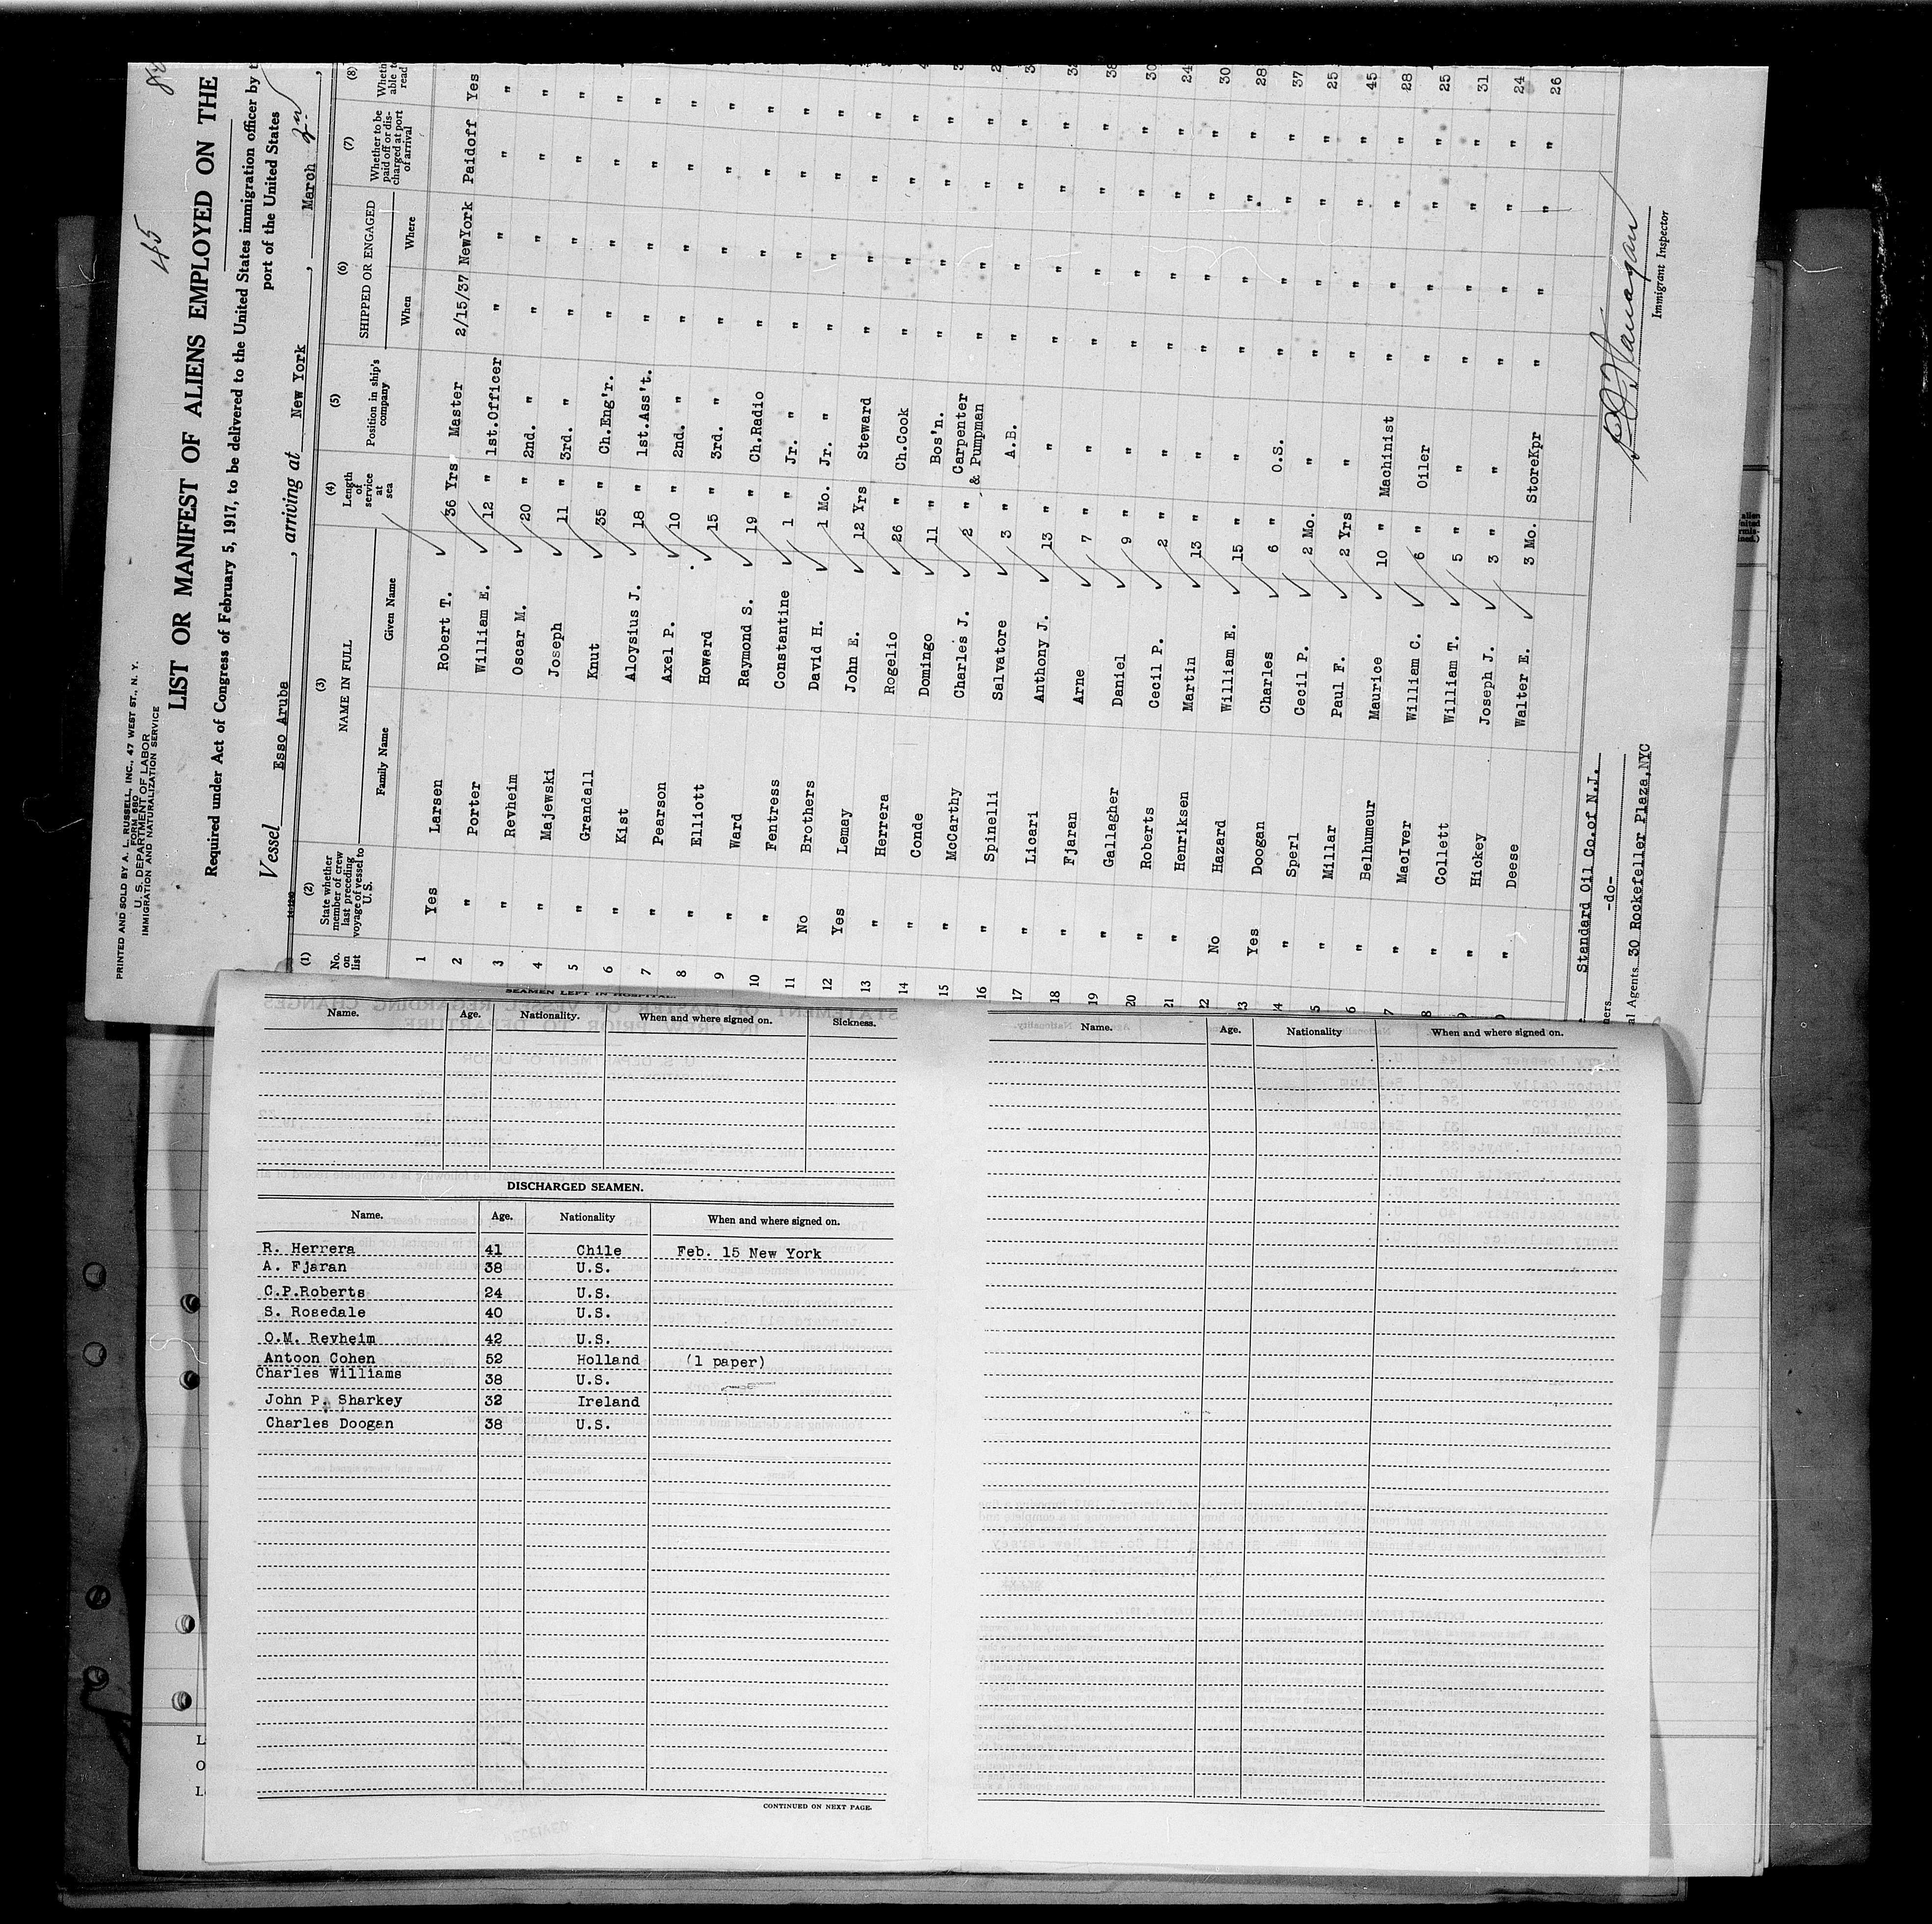 PRINTED AND SOLD BY A. L. RUSSELL, INC., 47 WEST ST., N. Y.
FORM 680
U. S. DEPARTMENT OF LABOR
IMMIGRATION AND NATURALIZATION SERVICE
45
LIST OR MANIFEST OF ALIENS EMPLOYED ON THE
Required under Act of Congress of February 5, 1917, to be delivered to the United States immigration officer by
port of the United States
Vessel Esso Aruba, arriving at New York, March
(1) (2) (3) (4) (5) (6) (7) (8)
No. on list State whether member of crew last preceding voyage of vessel to U.S. NAME IN FULL Length of service at sea Position in ship's company SHIPPED OR ENGAGED Whether to be paid off or discharged at port of arrival
Family Name Given Name When Where
1 Yes Larsen Robert T. 36 Yrs Master 2/15/37 NewYork Paidoff Yes
2 " Porter William E. 12 " 1st.Officer " " " "
3 " Revheim Oscar M. 20 " 2nd. " " " " "
4 " Majewski Joseph 11 " 3rd. " " " " "
5 " Grandall Knut 35 " Ch.Eng'r. " " " "
6 " Kist Aloysius J. 18 " 1st.Ass't. " " " "
7 " Pearson Axel P. 10 " 2nd. " " " " "
8 " Elliott Howard 15 " 3rd. " " " " "
9 " Ward Raymond S. 19 " Ch.Radio " " " "
10 " Fentress Constantine 1 " Jr. " " " " "
11 No Brothers David H. 1 Mo. Jr. " " " " "
12 Yes Lemay John E. 12 Yrs Steward " " " "
13 " Herrera Rogelio 26 " Ch.Cook " " " "
14 " Conde Domingo 11 " Bos'n. " " " "
15 " McCarthy Charles J. 2 " Carpenter & Pumpman " " " "
16 " Spinelli Salvatore 3 " A.B. " " " "
17 " Licari Anthony J. 13 " " " " " "
18 " Fjaran Arne 7 " " " " " " 38
19 " Gallagher Daniel 9 " " " " " " 30
20 " Roberts Cecil P. 2 " " " " " " 24
21 " Henriksen Martin 13 " " " " " " 30
22 No Hazard William E. 15 " " " " " " 28
23 Yes Doogan Charles 6 " O.S. " " " " 37
24 " Sperl Cecil P. 2 Mo. " " " " " 25
5 " Millar Paul F. 2 Yrs " " " " " 45
6 " Belhumeur Maurice 10 " Machinist " " " " 28
7 " MacIver William C. 6 " Oiler " " " " 25
8 " Collett William T. 5 " " " " " " 31
9 " Hickey Joseph J. 3 " " " " " " 24
" Deese Walter E. 3 Mo. StoreKpr " " " " 26
Standard Oil Co.of N.J.
ners -do-
al Agents 30 Rockefeller Plaza,NYC
Immigrant Inspector
SEAMEN LEFT IN HOSPITAL.
Name. Age. Nationality. When and where signed on. Sickness.
DISCHARGED SEAMEN.
Name. Age. Nationality When and where signed on.
R. Herrera 41 Chile Feb. 15 New York
A. Fjaran 38 U.S.
C.P.Roberts 24 U.S.
S. Rosedale 40 U.S.
O.M. Revheim 42 U.S.
Antoon Cohen 52 Holland (1 paper)
Charles Williams 38 U.S.
John P. Sharkey 32 Ireland
Charles Doogan 38 U.S.
CONTINUED ON NEXT PAGE.
Name. Age. Nationality When and where signed on.